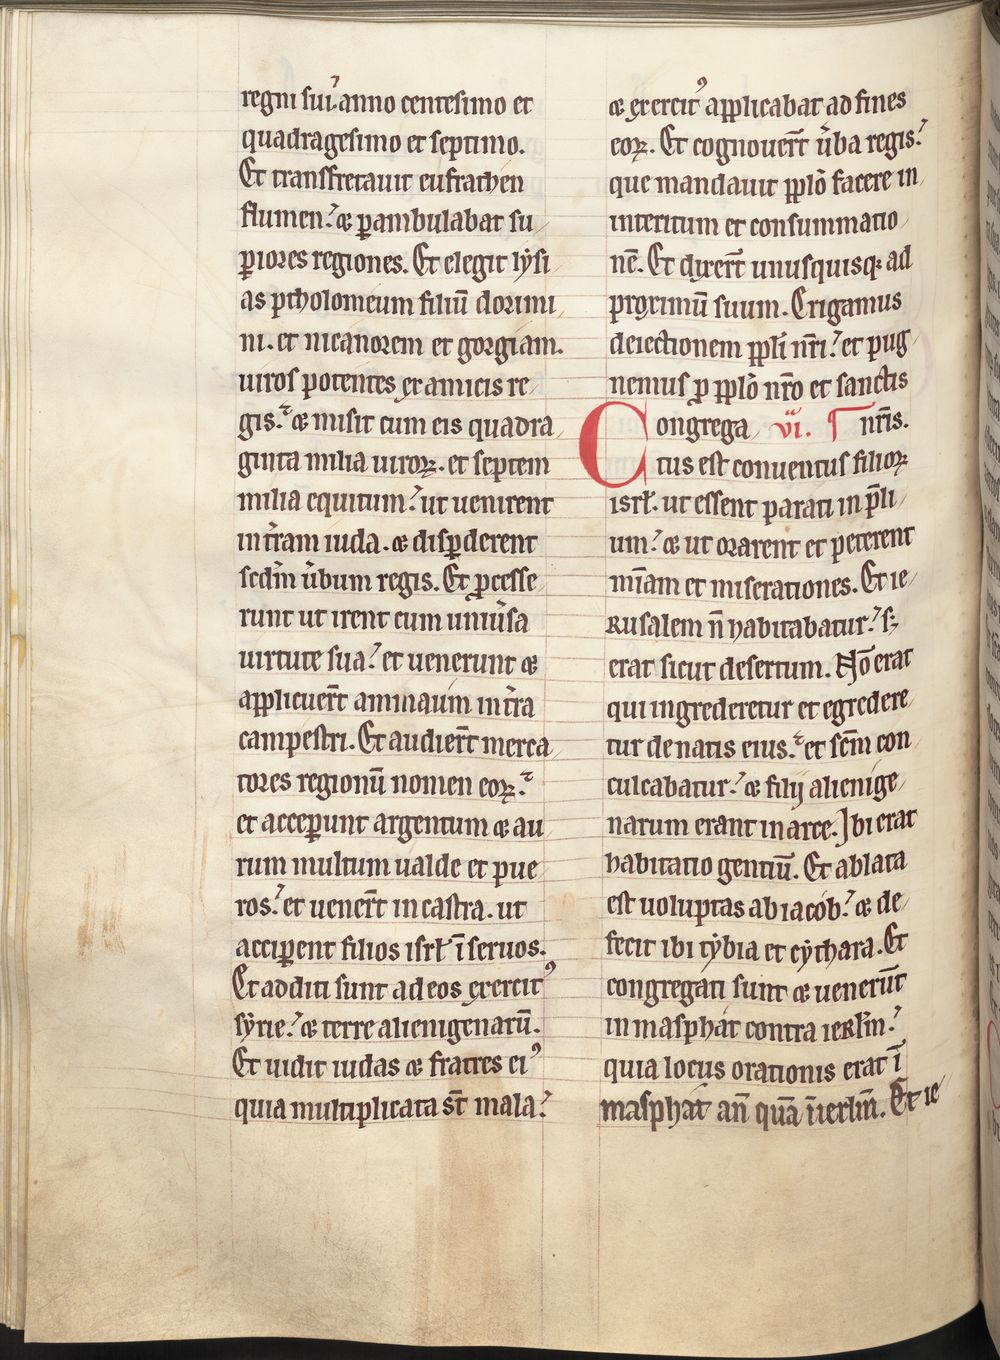 regni sui. anno centesimo et
quadragesimo et septimo.
Et transfretauit eufraten
flumen. ⁊ p̱ambulabat su
p̱iores regiones. Et elegit lysi
as ptholomeum filiū dorimi
ni. et nicanorem et gorgiam.
uiros potentes ex amicis re
gis. ⁊ misit cum eis quadra
ginta milia uiroꝝ. et septem
milia equitum. ut uenirent
in t̄ram iuda. ⁊ disꝑderent
scdm̄ ůbum regis. Et ꝓcesse
runt ut irent cum uniůsa
uirtute sua. et uenerunt ⁊
applicuer̄t aminaum in t̄ra
campestri. Et audier̄t merca
tores regionū nomen eoꝝ.
et acceꝑunt argentum ⁊ au
rum multum ualde et pue
ros. et uener̄t in castra. ut
acciꝑent filios isrł ī seruos.
Et additi sunt ad eos exercit᾿
syrie. ⁊ terre alienigenarū.
Et uidit iudas ⁊ fratres ei᾿
quia multiplicata s̄t mala.
⁊ exercit᾿ applicabat ad fines
eoꝝ. Et cognouer̄t ůba regis.
que mandauit pplo̅ facere in
interitum et consummatio
nē. Et dixer̄t unusquisqꝫ ad
proximū suum. Erigamus
deiectionem ppli̅ nr̄i. et pug
nemus ꝓ pplo̅ nr̄o et sanctis
Congrega vi. nr̄is.
tus est conuentus filioꝝ
isrł. ut essent parati in p̄li
um. ⁊ ut orarent et peterent
mīam et miserationes. Et ie
rusalem n̄ habitabatur. sꝫ
erat sicut desertum. Nō erat
qui ingrederetur et egredere
tur de natis eius. et scm̄ con
culcabatur. ⁊ filij alienige
narum erant in arce. Ibi erat
habitatio gentiū. Et ablata
est uoluptas ab iacob. ⁊ de
fecit ibi tybia et cythara. Et
congregati sunt ⁊ uenerūt
in masphat contra ierłm̄.
quia locus orationis erat ī
masphat an̄ quā ī ierłm̄. Et ie